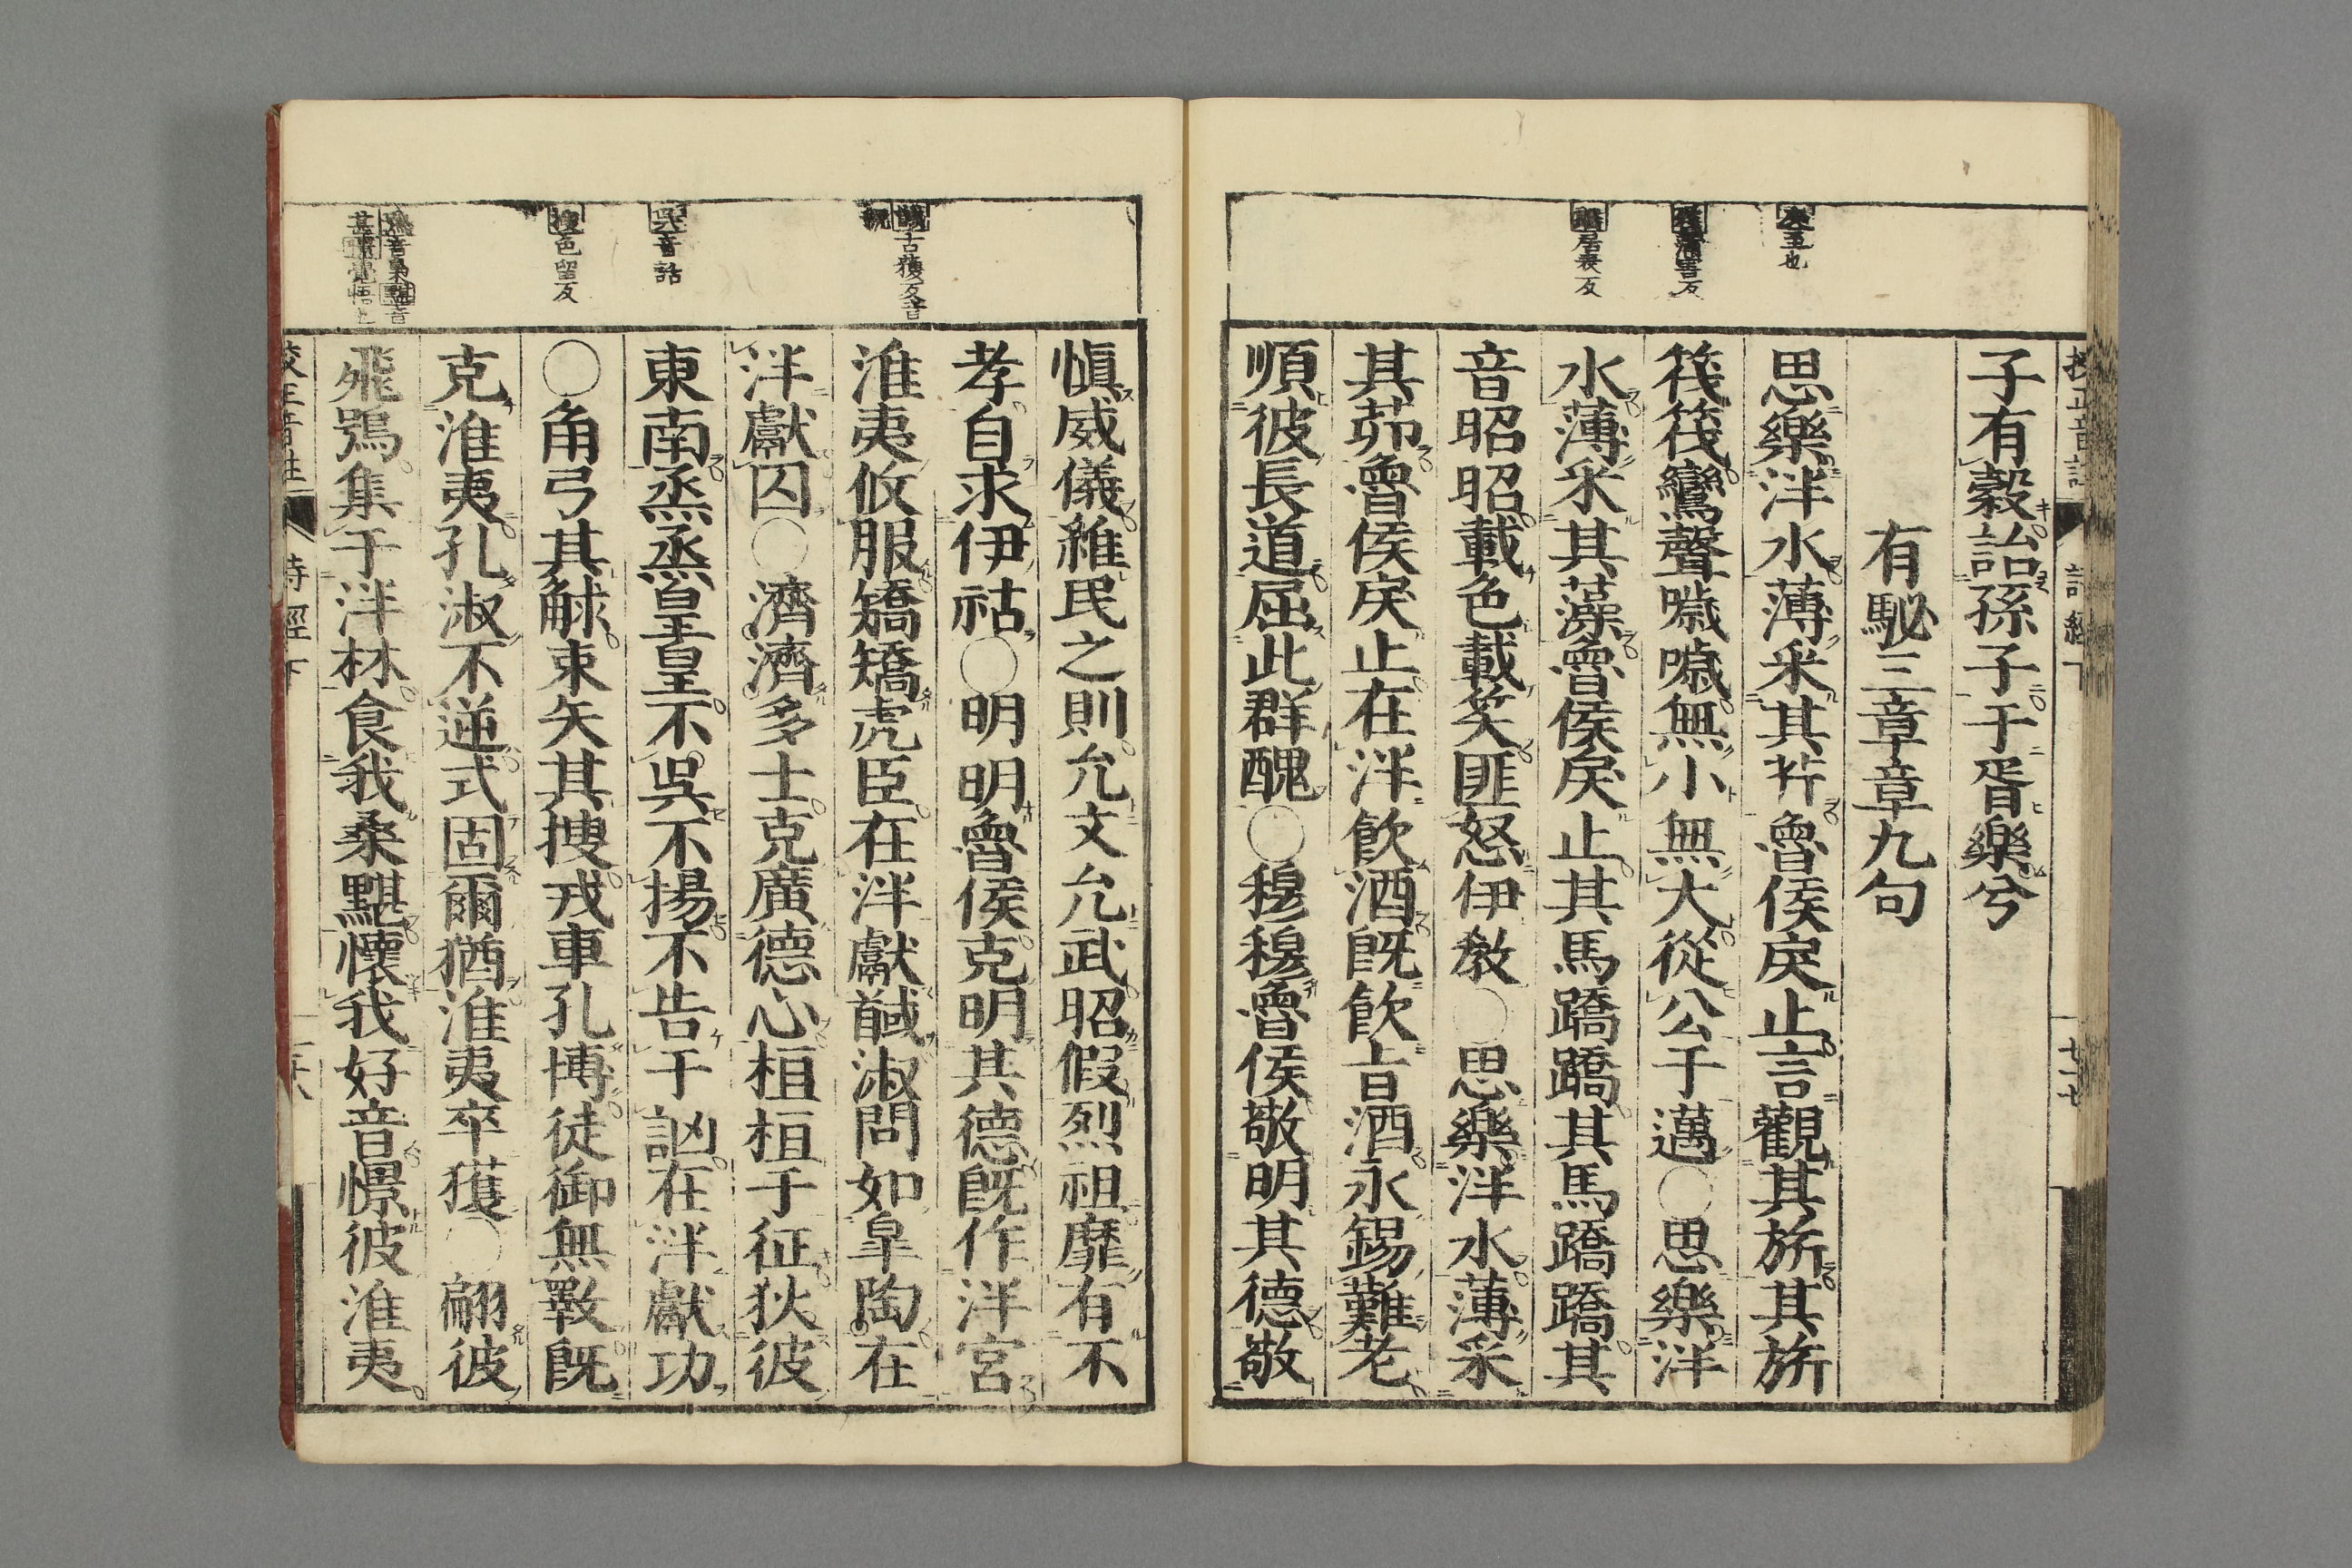 戾至也
筏蒲害反
蹻居表反
子有穀詒孫子于胥樂兮
有駜三章章九句
思樂泮水薄采其芹魯侯戾止言觀其旂其旂
筏筏鸞聲噦噦無小無大從公于邁○思樂泮
水薄采其藻魯侯戾止其馬蹻蹻其馬蹻蹻其
音昭昭載色載笑匪怒伊敎○思樂泮水薄采
其茆魯侯戾止在泮飮酒旣飮旨酒永錫難老
順彼長道屈此群醜○穆穆魯侯敬明其德敬
馘古獲反音
吳音話
搜色留反
愼威儀維民之則允文允武昭假烈祖靡有不
孝自求伊祜○明明魯侯克明其德旣作泮宮
淮夷攸服矯矯虎臣在泮獻馘淑問如皐陶在
泮獻囚○濟濟多士克廣德心桓桓于征狄彼
東南烝烝皇皇不吳不揚不告于訩在泮獻功
○角弓其觩束矢其搜戎車孔博徒御無斁旣
克淮夷孔淑不逆式固爾猶淮夷卒獲○翩彼
飛鴞集于泮林食我桑黮懷我好音憬彼淮夷
詩經下